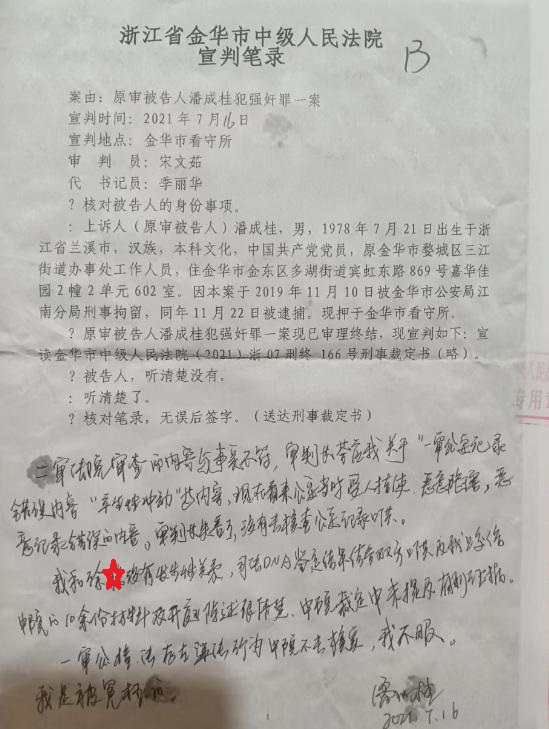 浙江省金华市中级人民法院
宣判笔录
13
案由：原审被告人潘成桂犯强奸罪一案
宣判时间：2021年7月16日
宣判地点：金华市看守所
审 判 员：宋文茹
代 书记员：季丽华
？核对被告人的身份事项。
：上诉人（原审被告人）潘成桂，男，1978年7月21日出生于浙
江省兰溪市，汉族，本科文化，中国共产党党员，原金华市婺城区三江
街道办事处工作人员，住金华市金东区多湖街道宾虹东路869号嘉华佳
园2幢2单元602室。因本案于2019年11月10日被金华市公安局江
南分局刑事拘留，同年11月22日被逮捕。现押于金华市看守所。
？原审被告人潘成桂犯强奸罪一案现已审理终结，现宣判如下：宣
读金华市中级人民法院（2021）浙07刑终166号刑事裁定书（略）。
？被告人，听清楚没有。
：听清楚了。
？核对笔录，无误后签字。（送达刑事裁定书）
二审法院审查的内容与事实不符，审判长答应我关于“一审公记录
错误内容
恶意记录错误的内容。审判长
我和徐 没有发生性关系，DNA鉴定结果
中院的10余份材料及开庭陈述很清楚，中院裁定中未提及有利证据。
一审公检法存在违法行为中院不去核实，我不服。
我是被冤枉的。
潘成桂
2021.7.16